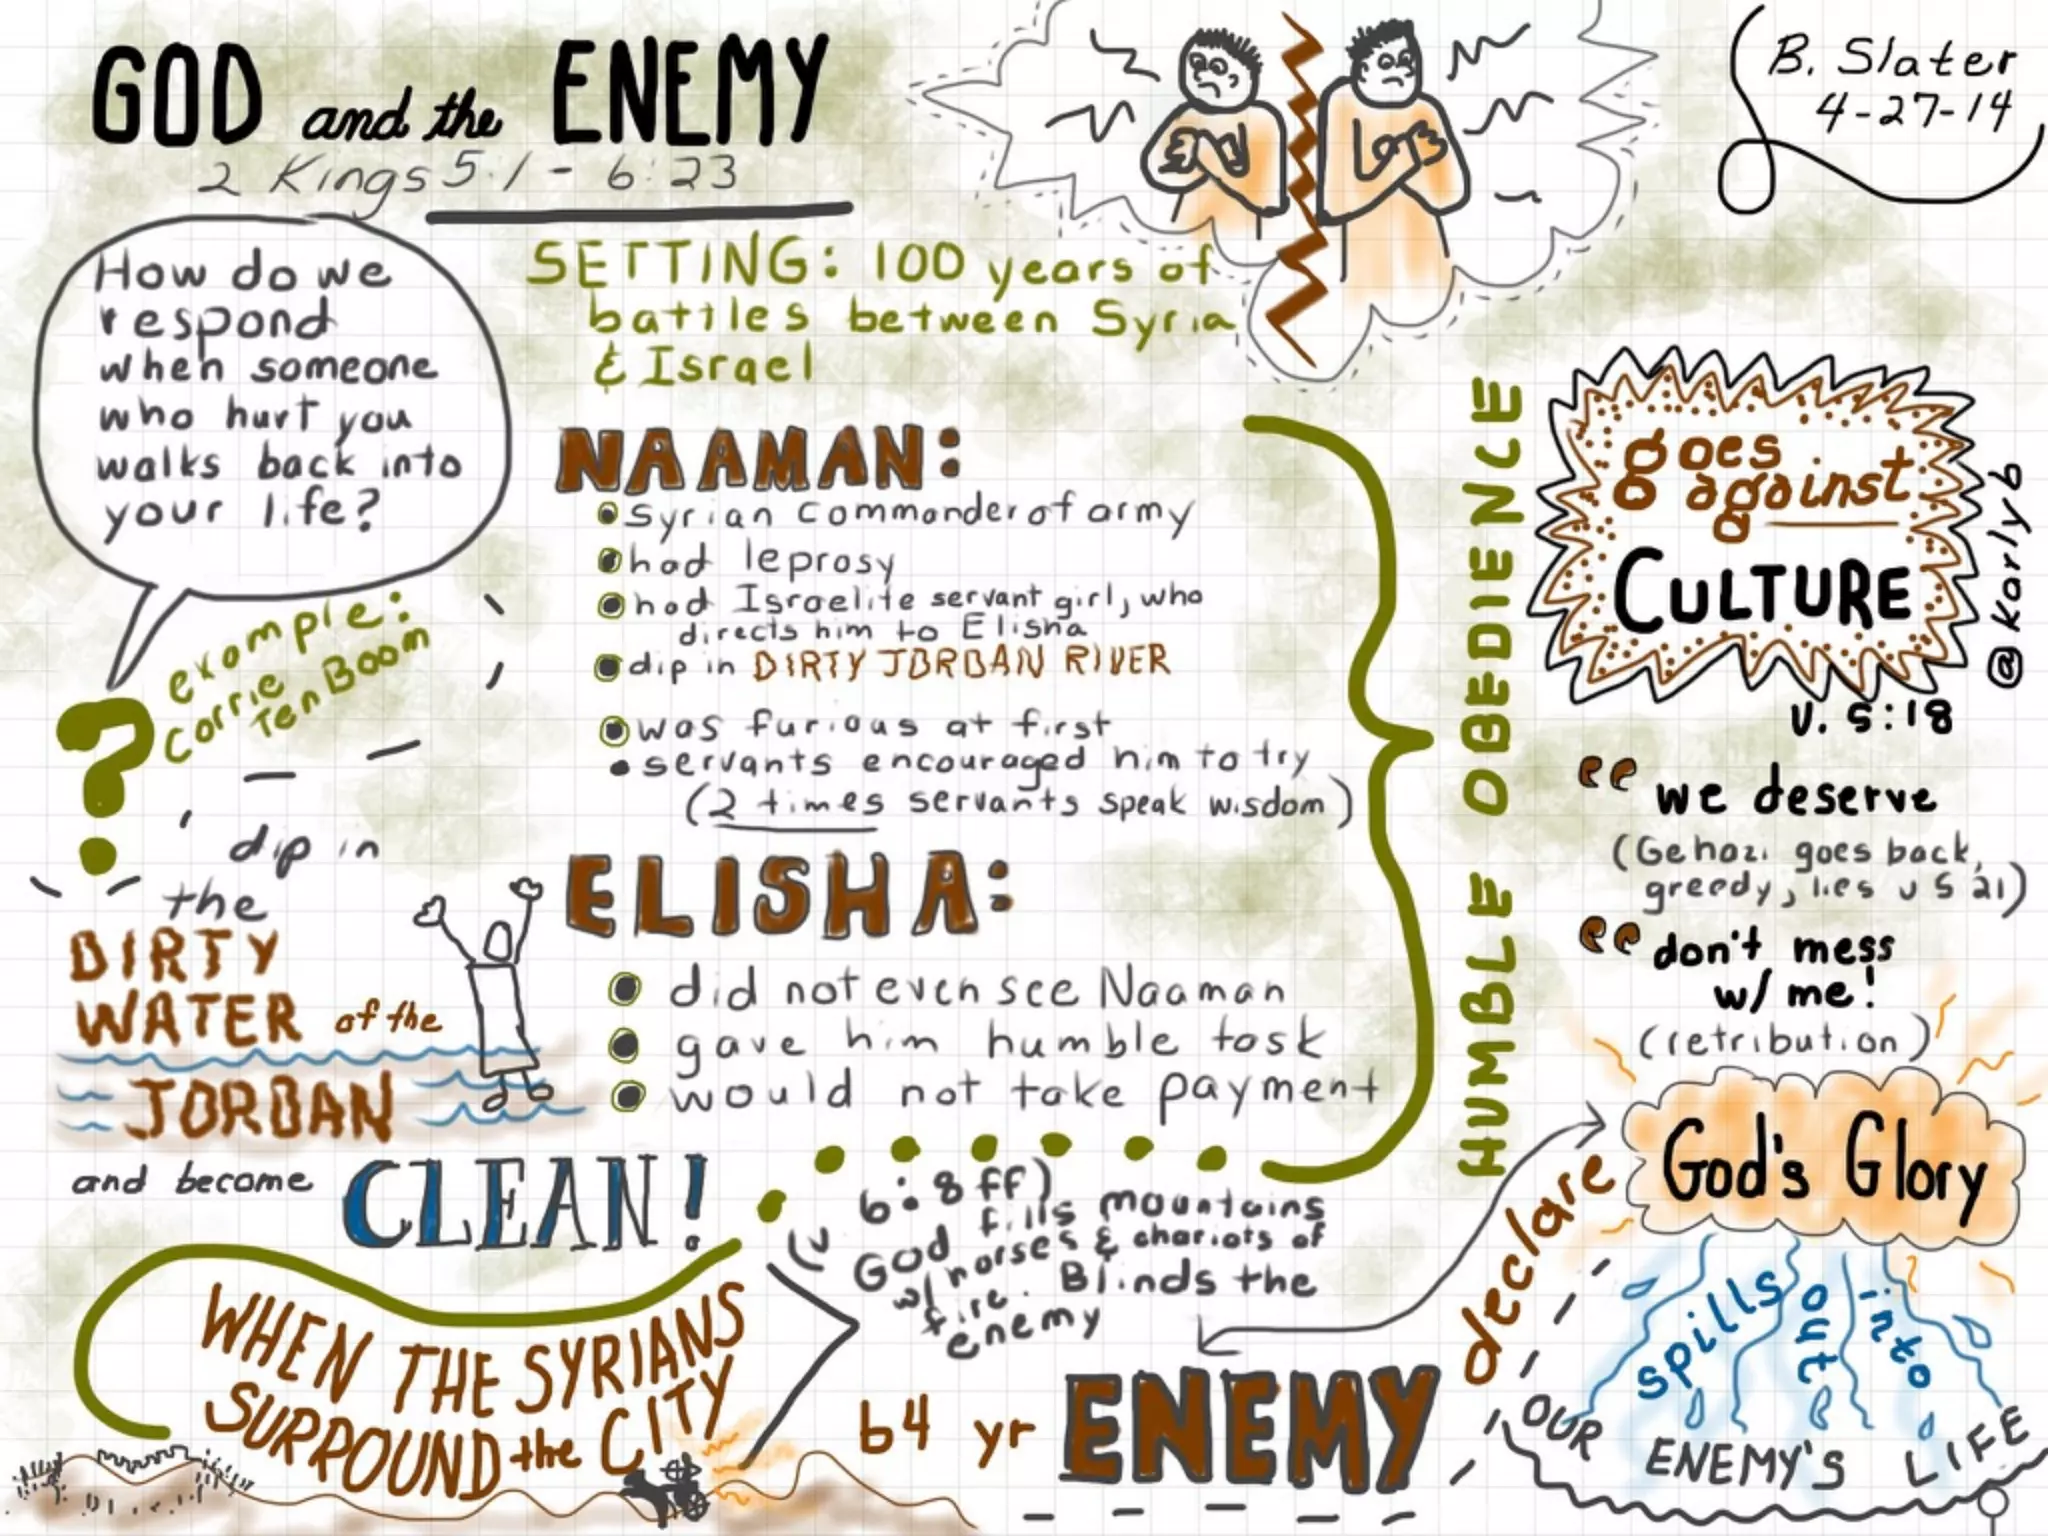 GOD and the ENEMY
2 Kings 5:1 - 6:23
B. Slater
4-27-14
How do we
respond
when someone
who hurt you
walks back into
your life?
example:
Corrie
Ten Boom
?
SETTING: 100 years of
battles between Syria
& Israel
NAAMAN:
Syrian commander of army
had leprosy
had Israelite servant girl, who
directs him to Elisha
dip in DIRTY JORDAN RIVER
was furious at first
servants encouraged him to try
(2 times servants speak wisdom)
ELISHA:
did not even see Naaman
gave him humble task
would not take payment
HUMBLE OBEDIENCE
goes
against
CULTURE
@Karlyb
v. 5:18
“ we deserve
(Gehazi goes back,
greedy, lies v 5 21)
“ don't mess
w/ me!
(retribution)
dip in
the
DIRTY
WATER of the
JORDAN
and become CLEAN!
WHEN THE SYRIANS
SURROUND the CITY
(v 6:8ff)
God fills mountains
w/ horses & chariots of
fire. Blinds the
enemy
b4 yr ENEMY
declare
God's Glory
spills out into
OUR ENEMY'S LIFE